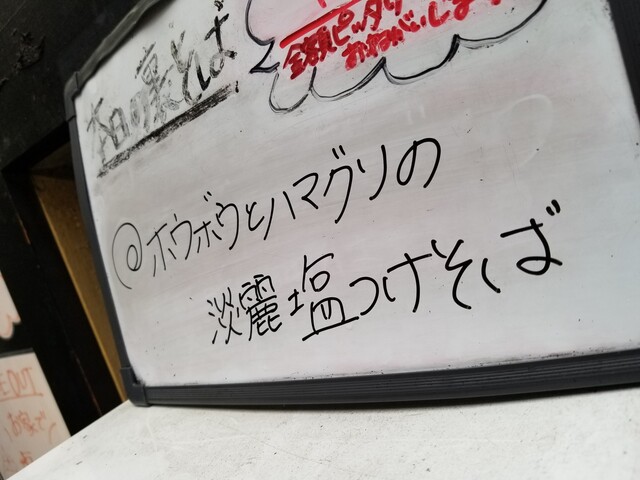 本日の裏そば
全額ピッタリ
おねがいします
@ホウボウとハマグリの
淡麗塩つけそば